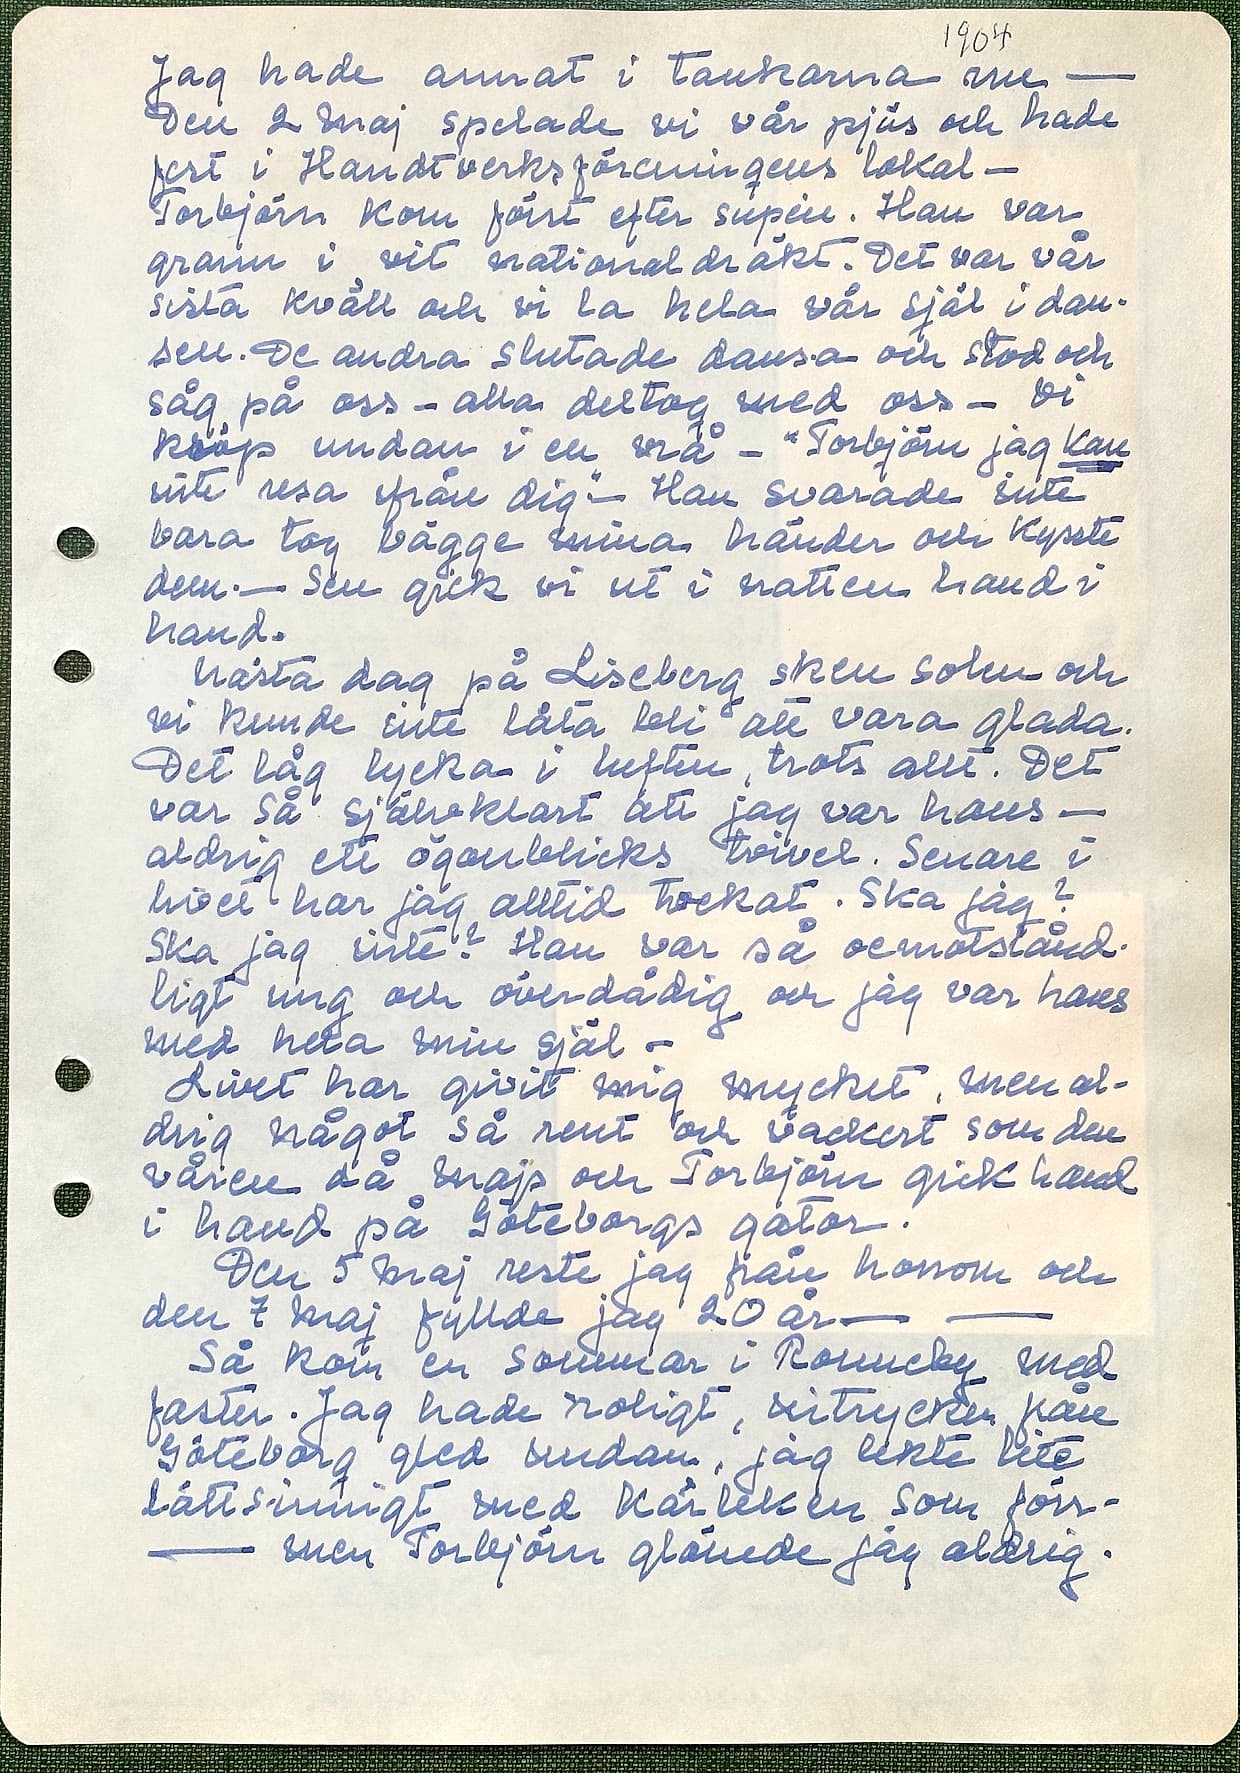 1904
Jag hade annat i tankarna nu —
Den 2 Maj spelade vi vår pjäs och hade
fest i Handtverksföreningens lokal —
Torbjörn kom först efter supén. Han var
grann i vit nationaldräkt. Det var vår
sista kväll och vi la hela vår själ i dan-
sen. De andra slutade dansa och stod och
såg på oss — alla deltog med oss — Vi
kröp undan i en vrå — "Torbjörn jag kan
inte resa ifrån dig" — Han svarade inte
bara tog bägge mina händer och kysste
dem. — Sen gick vi ut i natten hand i
hand.
Nästa dag på Liseberg sken solen och
vi kunde inte låta bli att vara glada.
Det låg lycka i luften, trots allt. Det
var så självklart att jag var hans —
aldrig ett ögonblicks tvivel. Senare i
livet har jag alltid tvekat. Ska jag?
Ska jag inte? Han var så oemotstånd-
ligt ung och överdådig och jag var hans
med hela min själ —
Livet har givit mig mycket, men al-
drig något så rent och vackert som den
våren då Majs och Torbjörn gick hand
i hand på Göteborgs gator.
Den 5 Maj reste jag från honom och
den 7 Maj fyllde jag 20 år — —
Så kom en sommar i Ronneby med
faster. Jag hade roligt, intrycken från
Göteborg gled undan, jag lekte lite
lättsinnigt med kärleken som förr —
— men Torbjörn glömde jag aldrig.